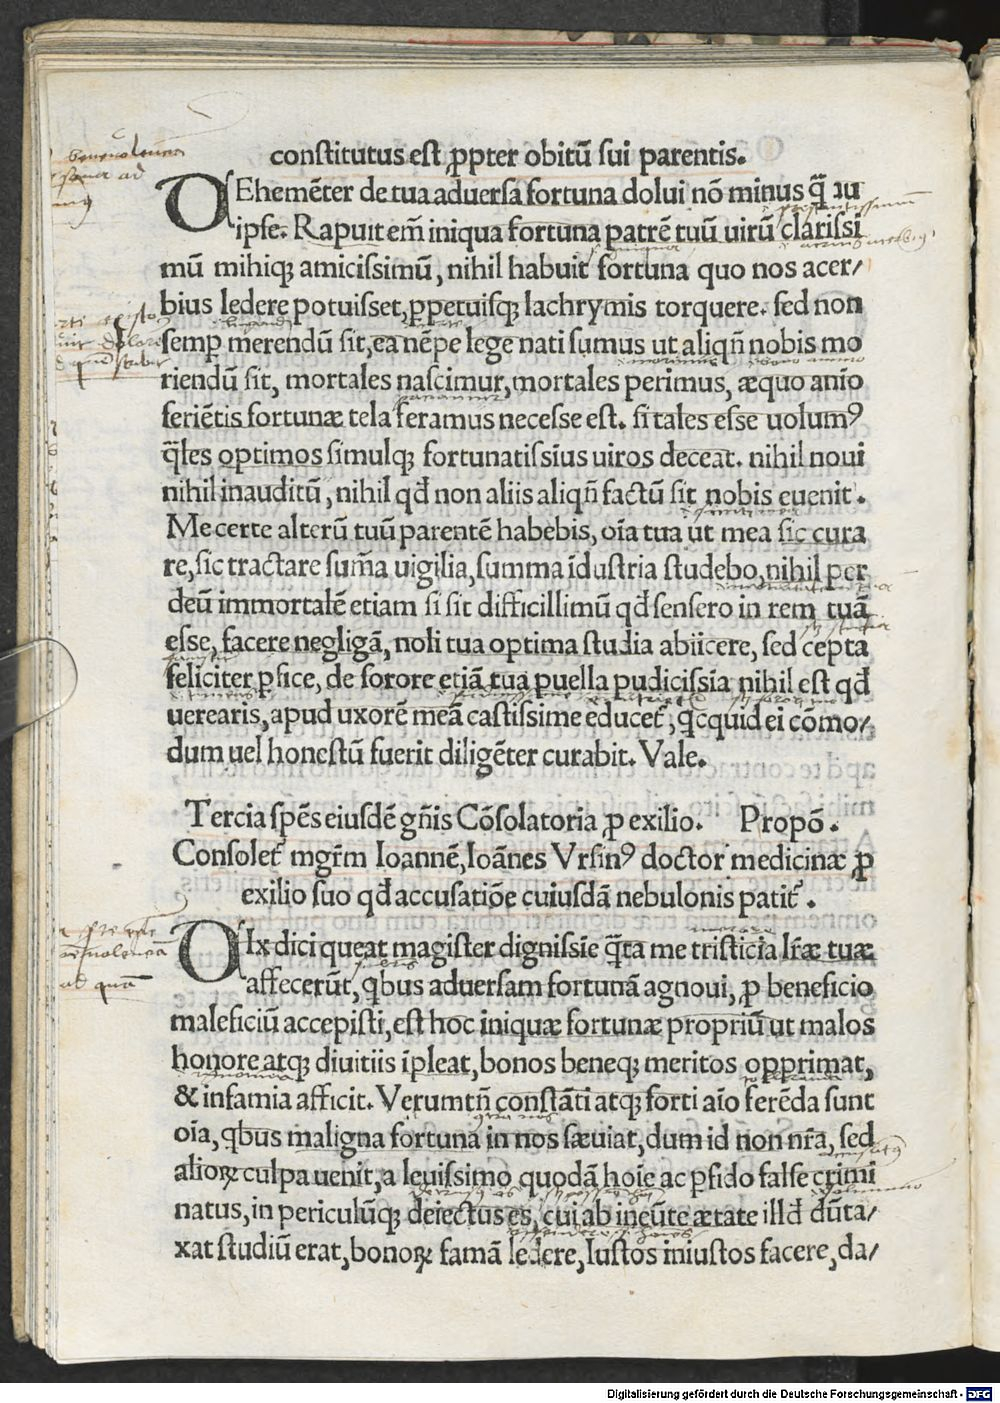 constitutus est ꝓpter obitū sui parentis.
VEhemēter de tua aduersa fortuna dolui nō minus q̄̃ tu
ipse. Rapuit em̄ iniqua fortuna patrē tuū uirū clarissi
mū mihiqꝫ amicissimū, nihil habuit fortuna quo nos acer/
bius ledere potuisset, ꝑpetuisqꝫ lachrymis torquere. sed non
semꝑ merendū sit, ea nēpe lege nati sumus ut aliqn̄ nobis mo
riendū sit, mortales nascimur, mortales perimus, æquo anīo
feriētis fortunæ tela feramus necesse est. si tales esse uolumꝰ
q̄les optimos simulqꝫ fortunatissīus uiros deceat. nihil noui
nihil inauditū, nihil qd̄ non aliis aliqn̄ factū sit nobis euenit.
Me certe alterū tuū parentē habebis, oīa tua ut mea sic cura
re, sic tractare sum̄a uigilia, summa īdustria studebo, nihil per
deū immortalē etiam si sit difficillimū qd̄ sensero in rem tuā
esse, facere negligā, noli tua optima studia abiicere, sed cepta
feliciter ꝑfice, de sorore etiā tua puella pudicissīa nihil est qd̄
uerearis, apud uxorē meā castissime educet᷑, qͥcquid ei cōmo/
dum uel honestū fuerit diligēter curabit. Vale.
Tercia spēs eiusdē gn̄is Cōsolatoria ꝓ exilio. Propō.
Consolet᷑ mgr̄m Ioannē, Ioānes Vrsinꝰ doctor medicinæ ꝓ
exilio suo qd̄ accusatiōe cuiusdā nebulonis patit᷑.
VIx dici queat magister dignissīe q̄ta me tristicia lr̄æ tuæ
affecerūt, qͥbus aduersam fortunā agnoui, ꝓ beneficio
maleficiū accepisti, est hoc iniquæ fortunæ propriū ut malos
honore atqꝫ diuitiis īpleat, bonos beneqꝫ meritos opprimat,
& infamia afficit. Verumtn̄ constāti atqꝫ forti aīo ferēda sunt
oīa, qͥbus maligna fortuna in nos sæuiat, dum id non nr̄a, sed
alioꝝ culpa uenit, a leuissimo quodā hoīe ac ꝑfido false crimi
natus, in periculūqꝫ deiectus es, cui ab ineūte ætate illd̄ dūta/
xat studiū erat, bonoꝝ famā ledere, Iustos iniustos facere, da/
Digitalisierung gefördert durch die Deutsche Forschungsgemeinschaft - DFG